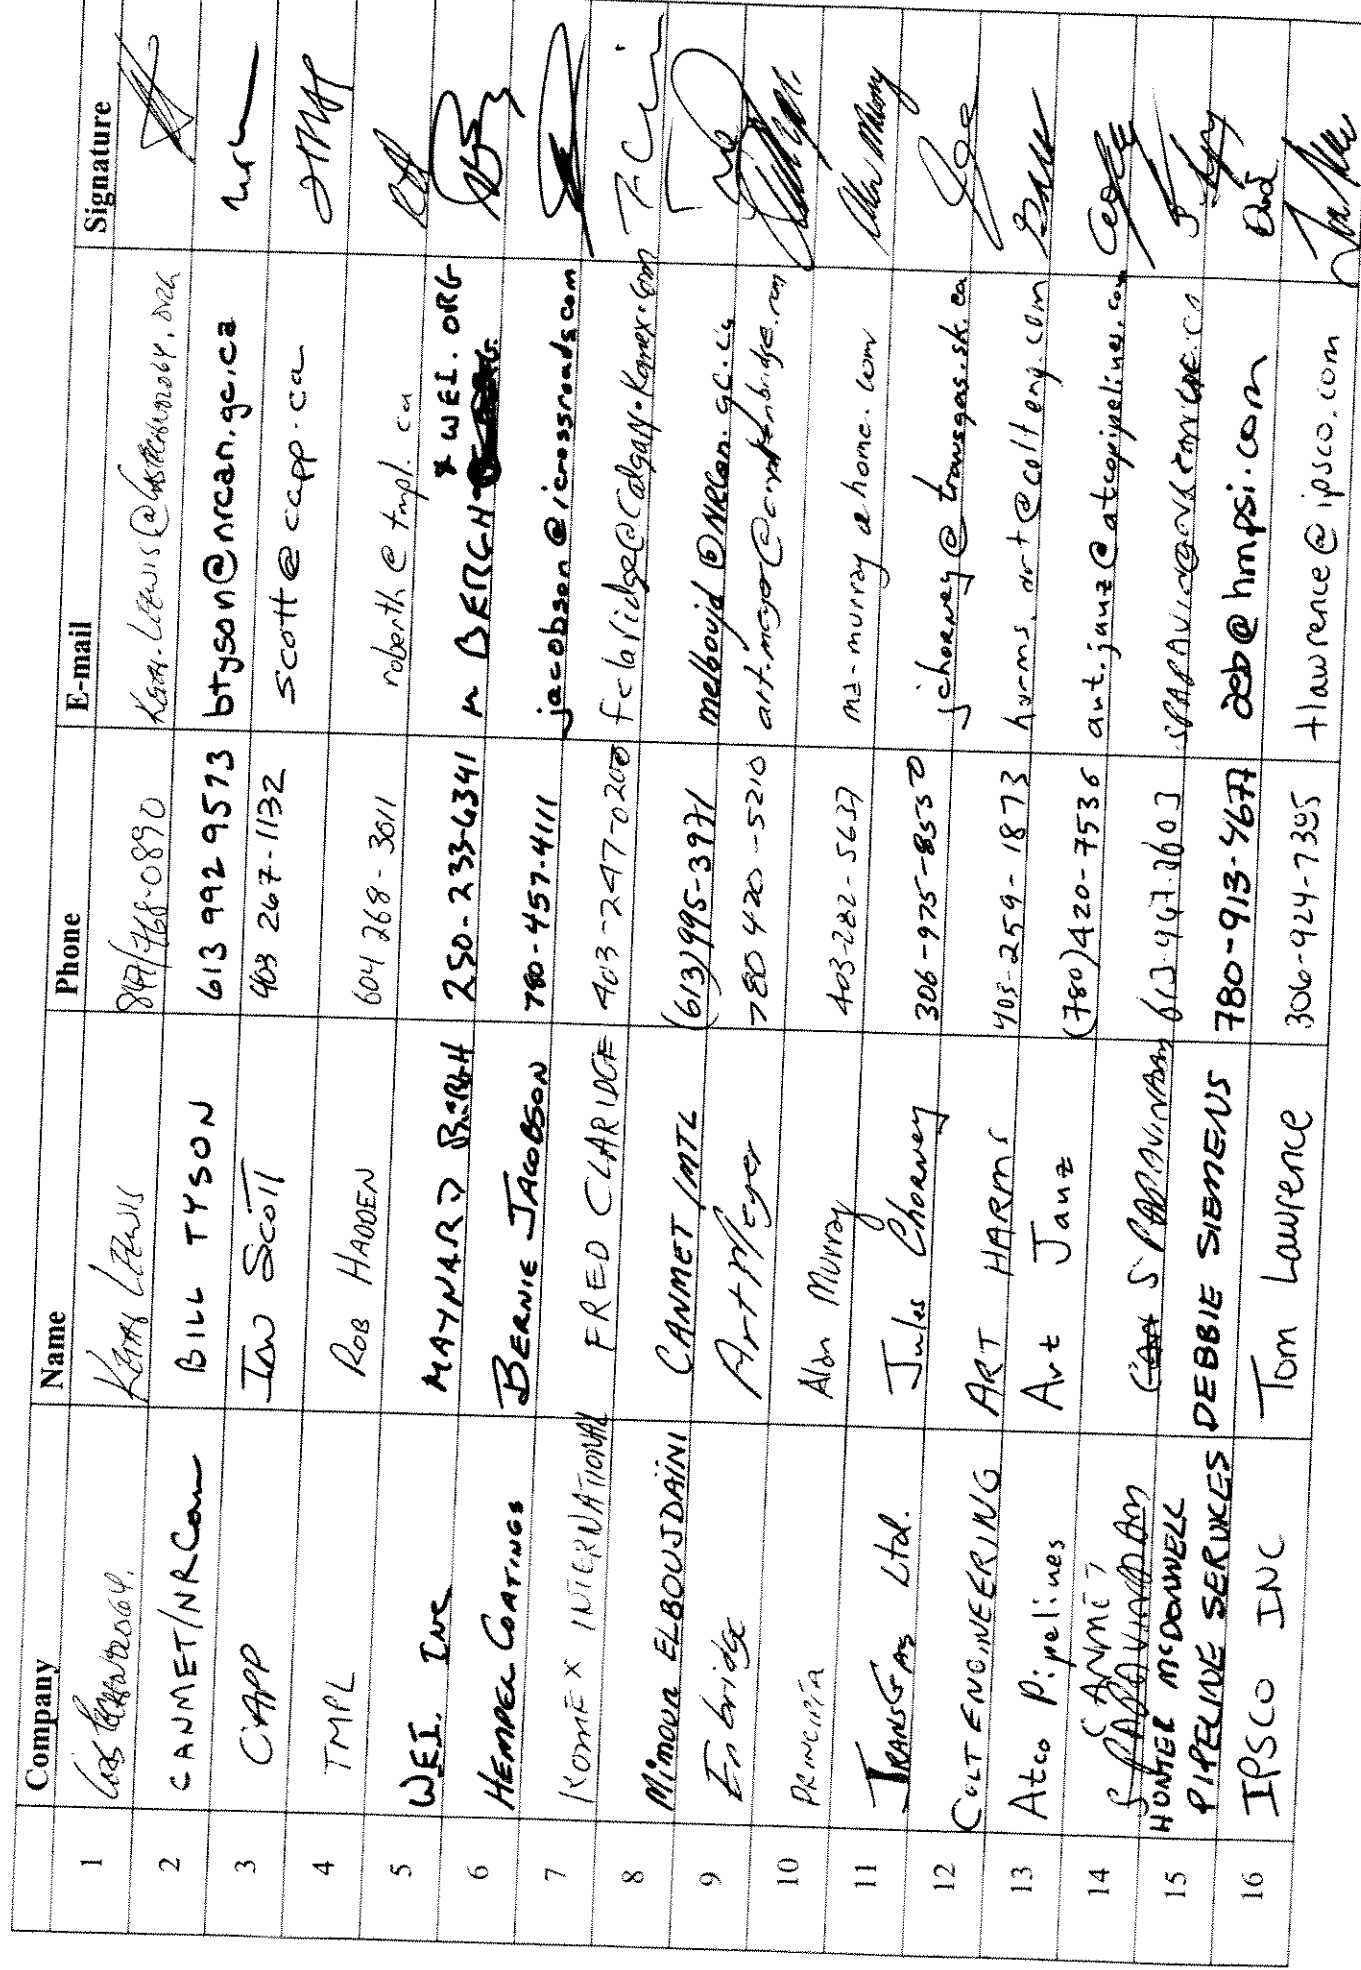 Company Name Phone E-mail Signature
1 847/768-0890
2 CANMET/NRCan BILL TYSON 613 992 9573 btyson@nrcan.gc.ca
3 CAPP Ian Scott 403 267-1132 scott@capp.ca
4 TMPL Rob HADDEN 604 268-3011 roberth@tmpl.ca
5 WEI. Inc MAYNARD BERGH 250-233-6341 M BERGH WEI.ORG
6 HEMPEL COATINGS BERNIE JACOBSON 780-457-4111 jacobson@icrossroads.com
7 KOMEX INTERNATIONAL FRED CLARIDGE 403-247-0200 fclaridge@Calgary.Komex.com
8 Mimoun ELBOUJDAÏNI CANMET/MTL (613)995-3971 melboujd@NRCan.gc.ca
9 Enbridge Art Meyer 780 420-5210
10 PRINCIPIA Alan Murray 403-282-5637 ma-murray@home.com
11 TRANSGAS Ltd. Jules Chorney 306-975-8550 jchorney@transgas.sk.ca
12 COLT ENGINEERING ART HARMS 403-259-1873 harms.art@colteng.com
13 Atco Pipelines Art Janz (780)420-7536 art.janz@atcopipelines.com
14 CANMET S PAPAVINASAM 613-947-3603
15 HUNTER McDONNELL PIPELINE SERVICES DEBBIE SIEMENS 780-913-4677 deb@hmpsi.com
16 IPSCO INC Tom Lawrence 306-924-7395 tlawrence@ipsco.com